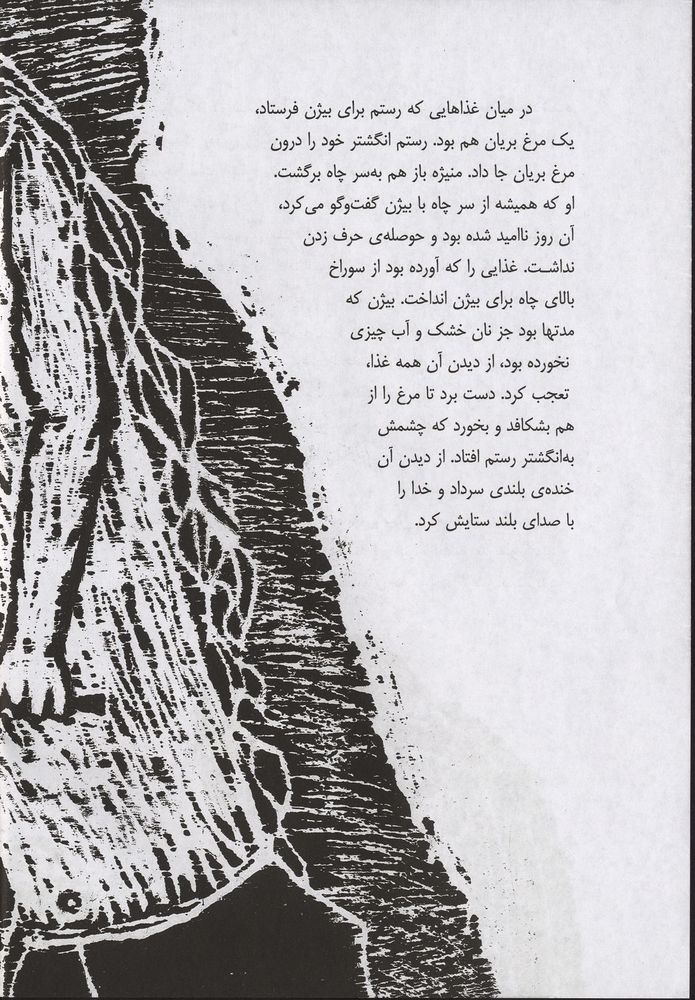 در میان غذاهایی که رستم برای بیژن فرستاد،
یک مرغ بریان هم بود. رستم انگشتر خود را درون
مرغ بریان جا داد. منیژه باز هم به‌سر چاه برگشت.
او که همیشه از سر چاه با بیژن گفت‌وگو می‌کرد،
آن روز ناامید شده بود و حوصله‌ی حرف زدن
نداشـت. غذایی را که آورده بود از سوراخ
بالای چاه برای بیژن انداخت. بیژن که
مدتها بود جز نان خشک و آب چیزی
نخورده بود، از دیدن آن همه غذا،
تعجب کرد. دست برد تا مرغ را از
هم بشکافد و بخورد که چشمش
به‌انگشتر رستم افتاد. از دیدن آن
خنده‌ی بلندی سرداد و خدا را
با صدای بلند ستایش کرد.